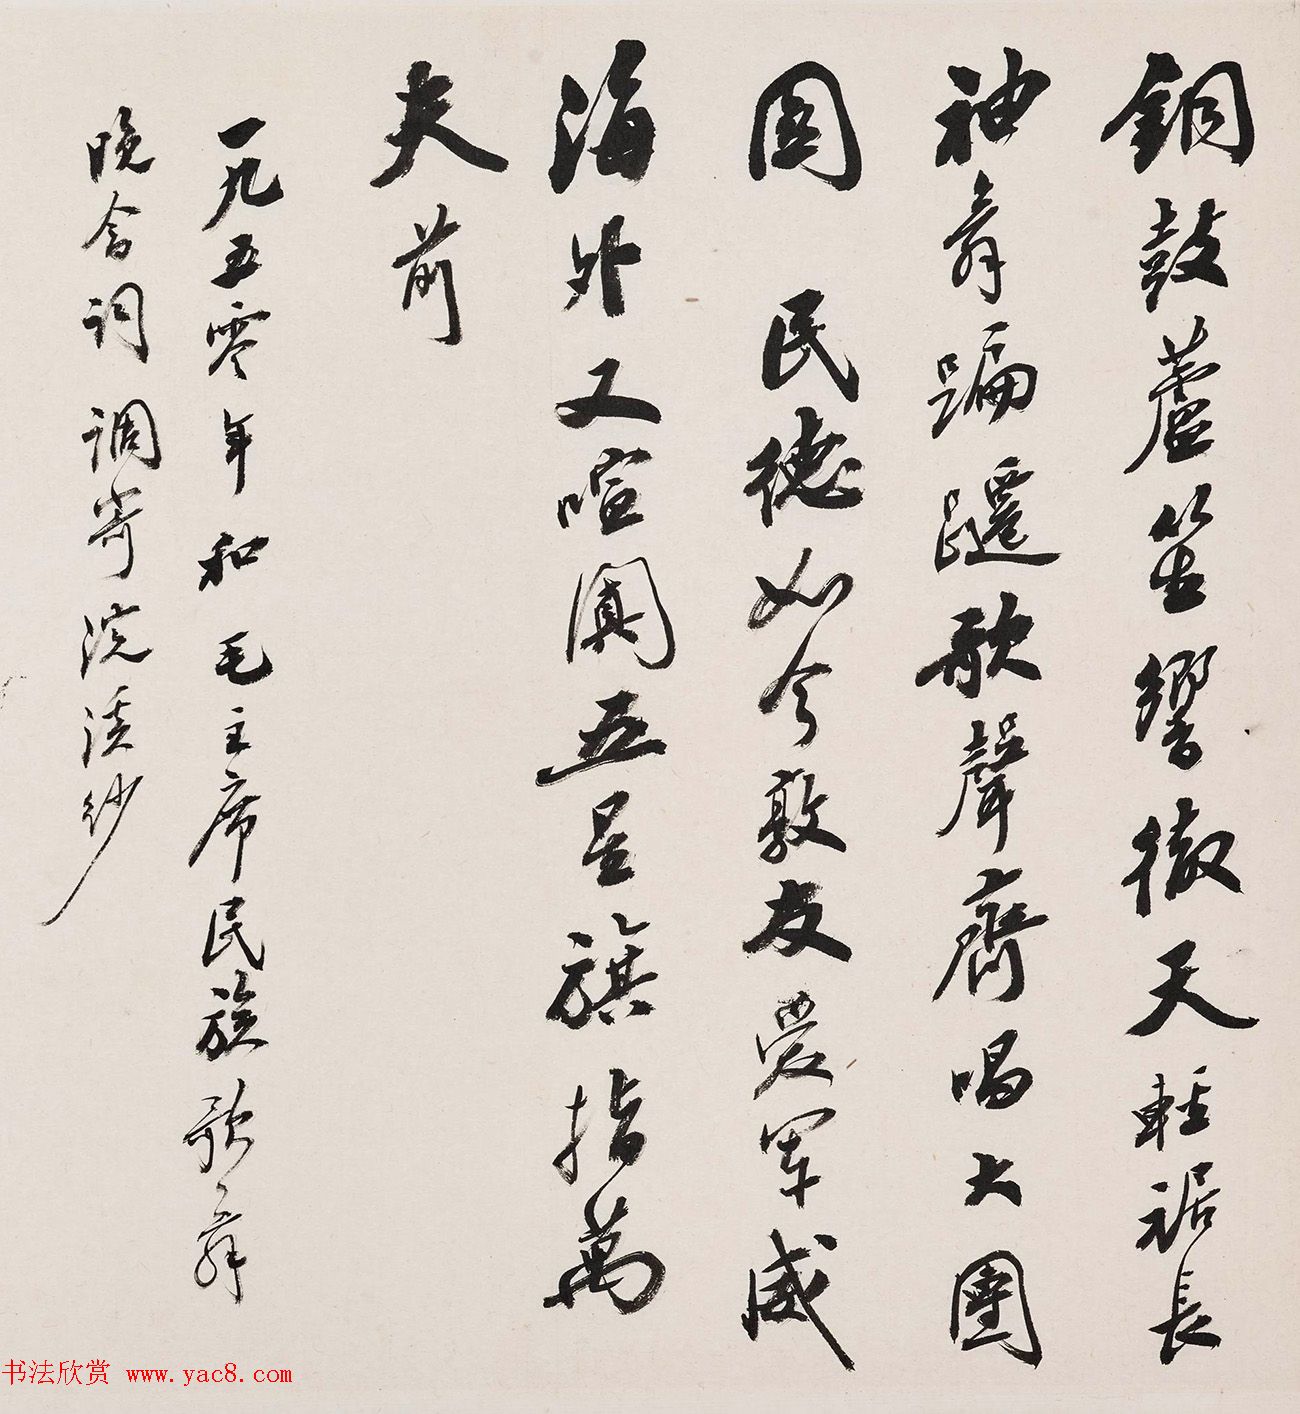 銅鼓蘆笙響徹天輕裾長
袖舞蹁躚歌聲齊唱大團
圓 民德如今敦友愛軍威
海外又喧闐五星旗指萬
夫前
一九五零年和毛主席民族歌舞
晚會詞 調寄浣溪紗
书法欣赏 www.yac8.com